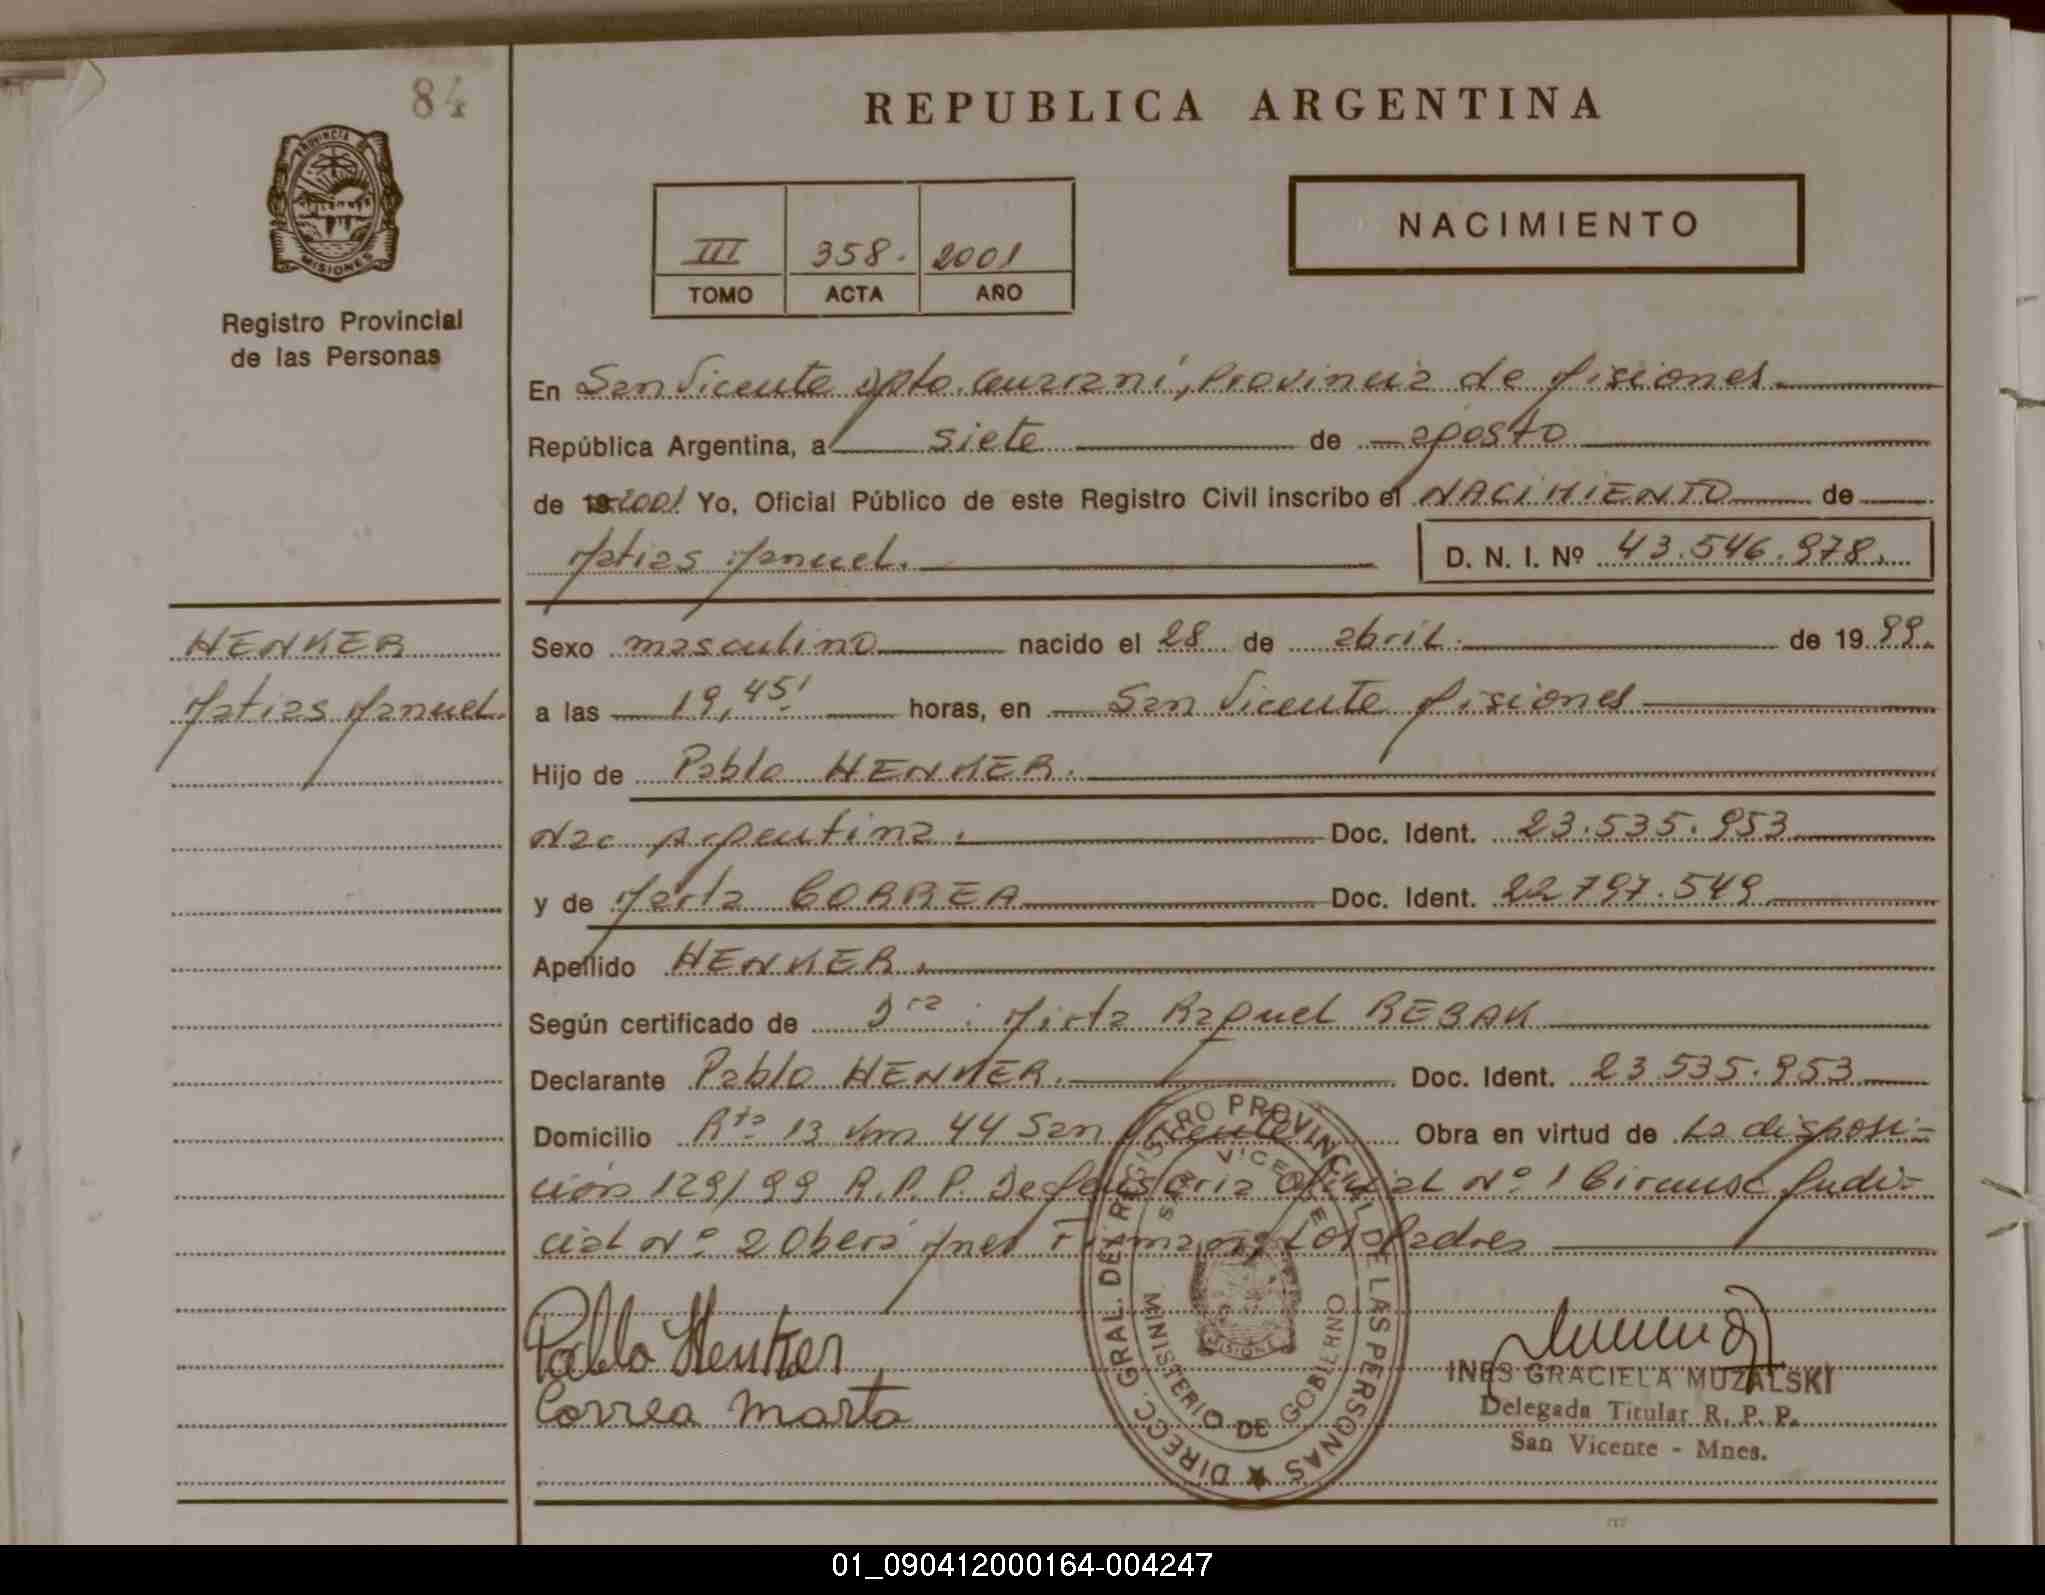 84
PROVINCIA DE
MISIONES
Registro Provincial
de las Personas
REPUBLICA ARGENTINA
III 358. 2001
TOMO ACTA AÑO
NACIMIENTO
En San Vicente Dpto. Guaraní, Provincia de Misiones
República Argentina, a siete de agosto
de 19 2001 Yo, Oficial Público de este Registro Civil inscribo el NACIMIENTO de
Matias Manuel.
D. N. I. Nº 43.546.978.
HENKER
Matias Manuel.
Sexo masculino nacido el 28 de abril. de 19 99.
a las 19,45' horas, en San Vicente Misiones
Hijo de Pablo HENKER.
Nac Argentina. Doc. Ident. 23.535.953
y de Marta CORREA Doc. Ident. 22797.549
Apellido HENKER.
Según certificado de Dra. Mirta Raquel REBAK
Declarante Pablo HENKER. Doc. Ident. 23.535.953
Domicilio Rta 13 km 44 San Vicente Obra en virtud de La disposi-
ción 129/99 R.P.P. Defensoria Oficial Nº 1 Circunsc Judi-
cial Nº 2 Oberá Mnes Firman Los Padres
Pablo Henker
Correa Marta
DIRECC. GRAL. DEL REGISTRO PROVINCIAL DE LAS PERSONAS
SAN VICENTE
MINISTERIO DE GOBIERNO
MISIONES
INES GRACIELA MUZALSKI
Delegada Titular R. P. P.
San Vicente - Mnes.
01_090412000164-004247